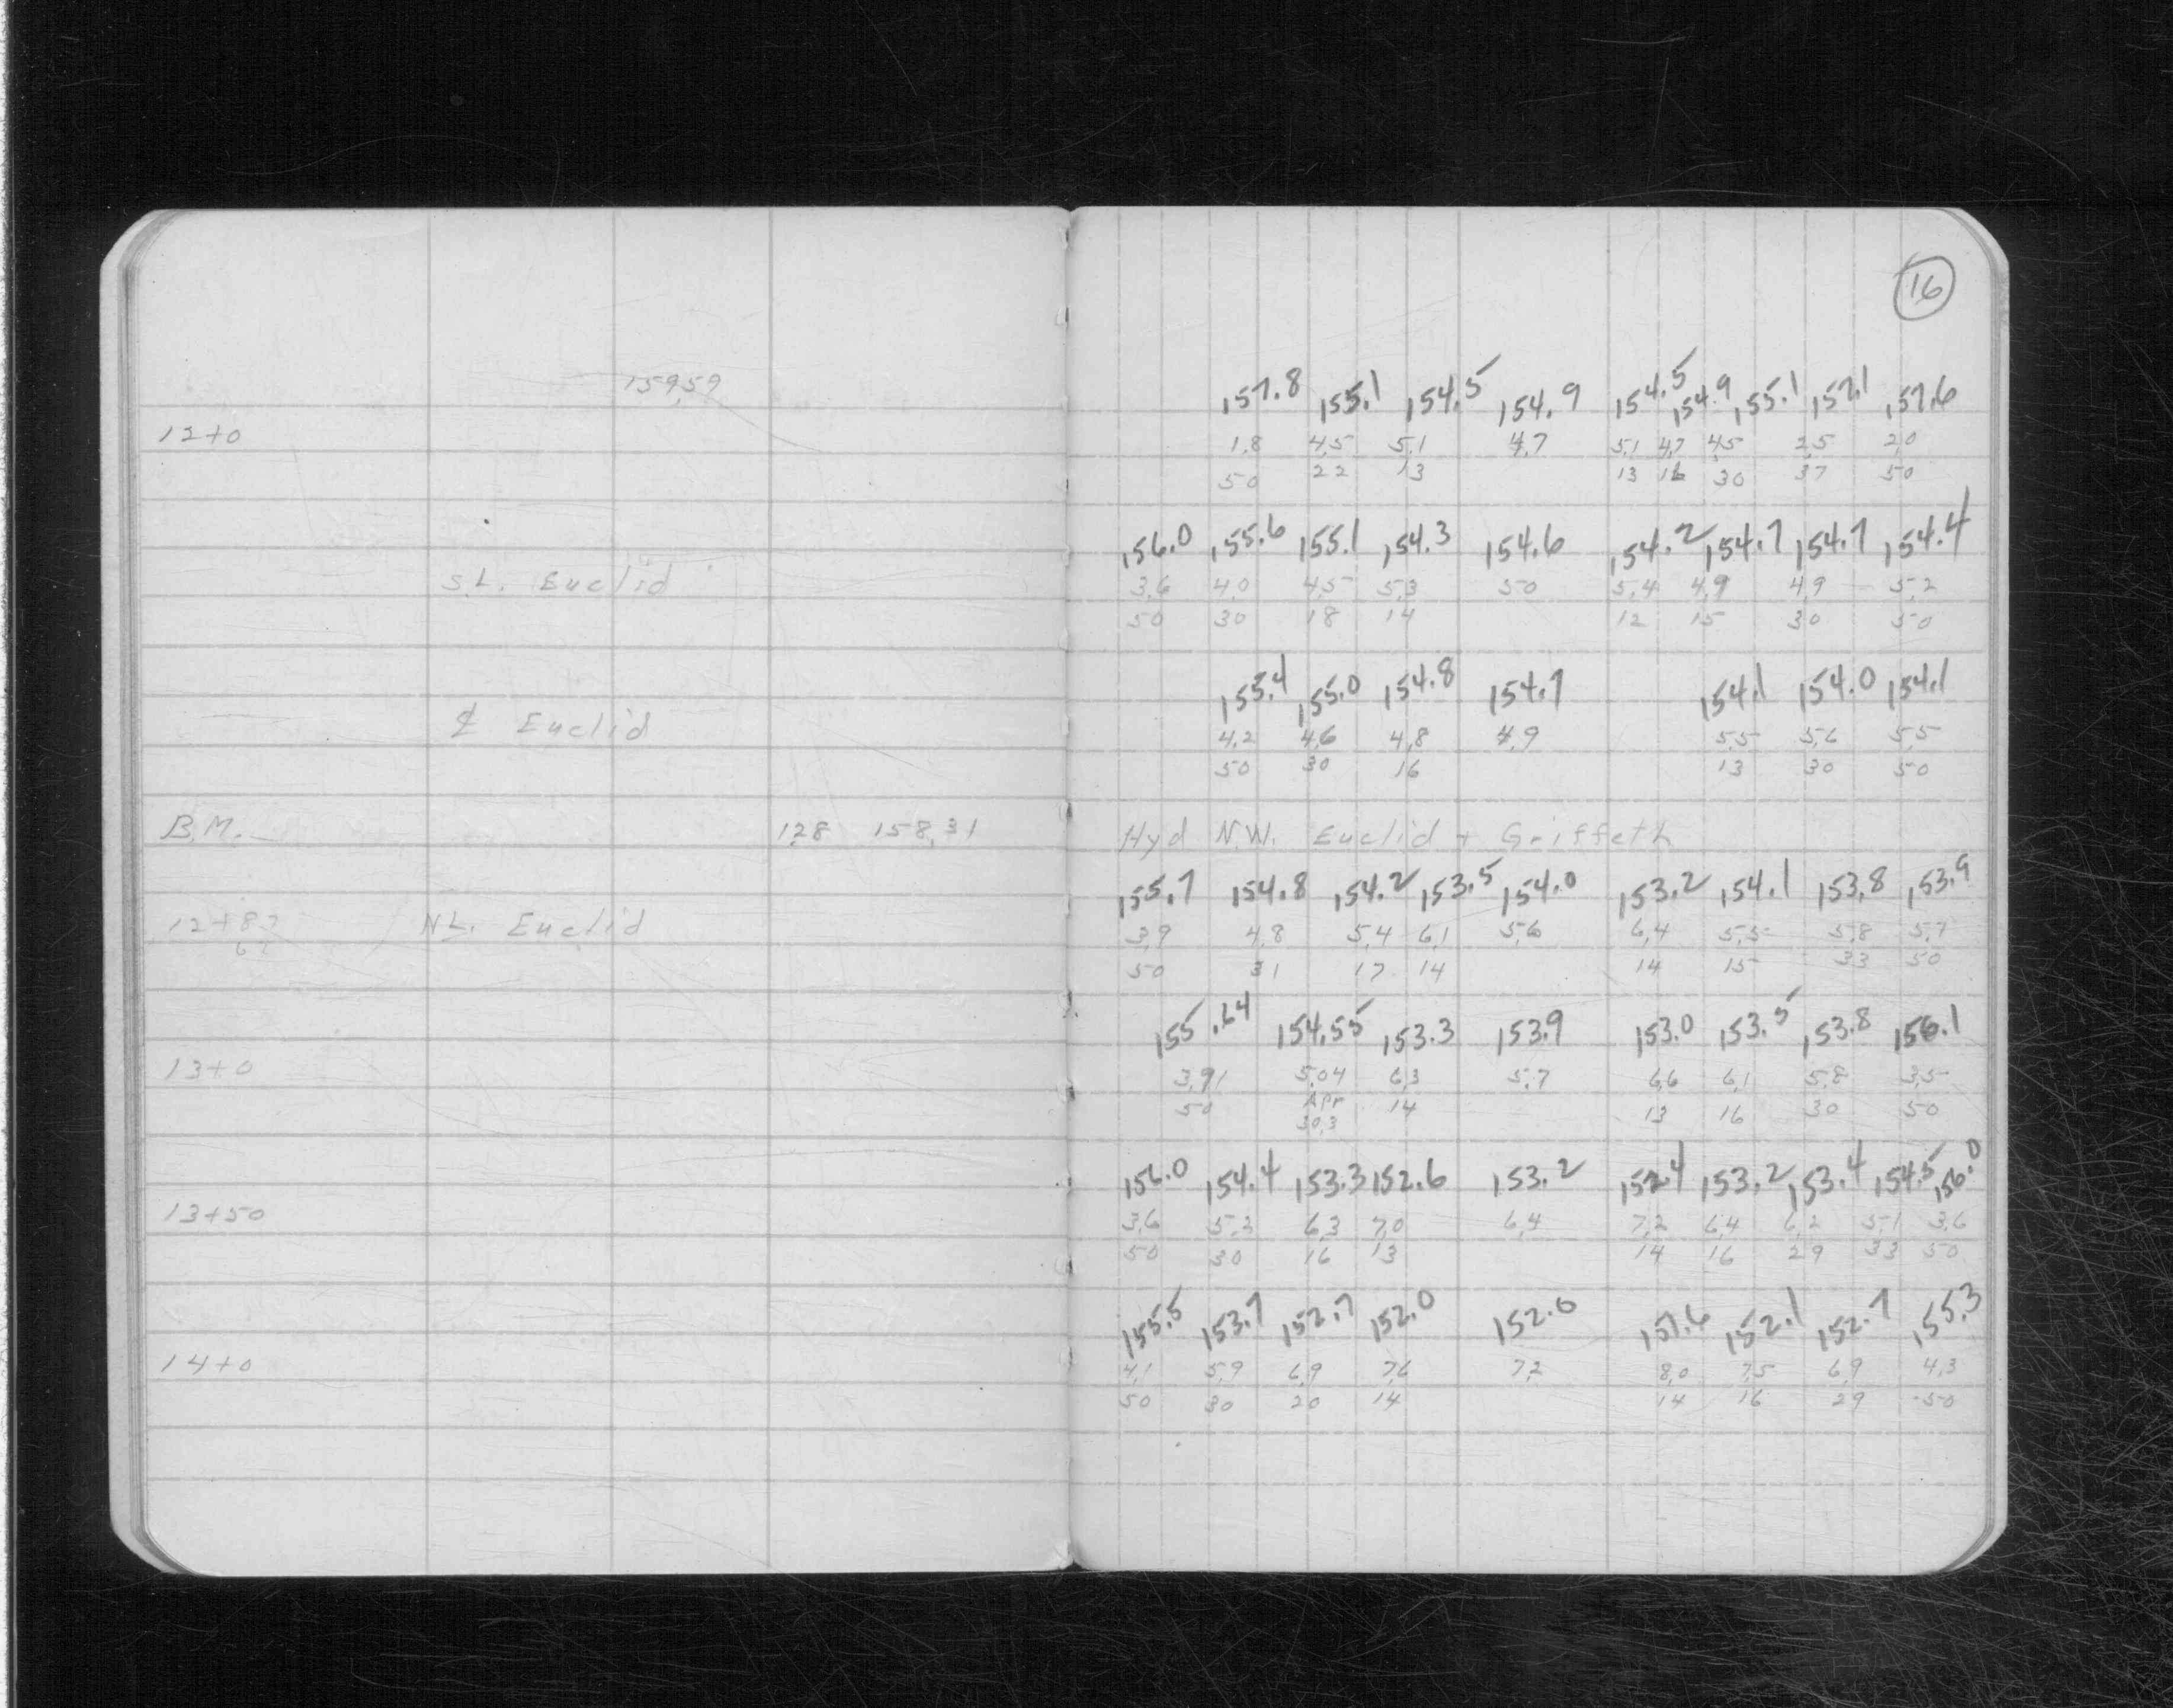 16
159.59
157.8 155.1 154.5 154.9 154.5 154.9 155.1 157.1 157.6
12+0 1.8 4.5 5.1 4.7 5.1 4.7 4.5 2.5 2.0
50 22 13 13 16 30 37 50
156.0 155.6 155.1 154.3 154.6 154.2 154.7 154.7 154.4
S.L. Euclid 3.6 4.0 4.5 5.3 5.0 5.4 4.9 4.9 5.2
50 30 18 14 12 15 30 50
155.4 155.0 154.8 154.7 154.1 154.0 154.1
℄ Euclid 4.2 4.6 4.8 4.9 5.5 5.6 5.5
50 30 16 13 30 50
B.M. 1.28 158.31 Hyd N.W. Euclid + Griffeth
155.7 154.8 154.2 153.5 154.0 153.2 154.1 153.8 153.9
12+87 N.L. Euclid 3.9 4.8 5.4 6.1 5.6 6.4 5.5 5.8 5.7
62 50 31 17 14 14 15 33 50
155.64 154.55 153.3 153.9 153.0 153.5 153.8 156.1
13+0 3.91 5.04 6.3 5.7 6.6 6.1 5.8 3.5
50 Apr 14 13 16 30 50
30.3
156.0 154.4 153.3 152.6 153.2 152.4 153.2 153.4 154.5 156.0
13+50 3.6 5.2 6.3 7.0 6.4 7.2 6.4 6.2 5.1 3.6
50 30 16 13 14 16 29 33 50
155.5 153.7 152.7 152.0 152.6 151.6 152.1 152.7 155.3
14+0 4.1 5.9 6.9 7.6 7.2 8.0 7.5 6.9 4.3
50 30 20 14 14 16 29 50